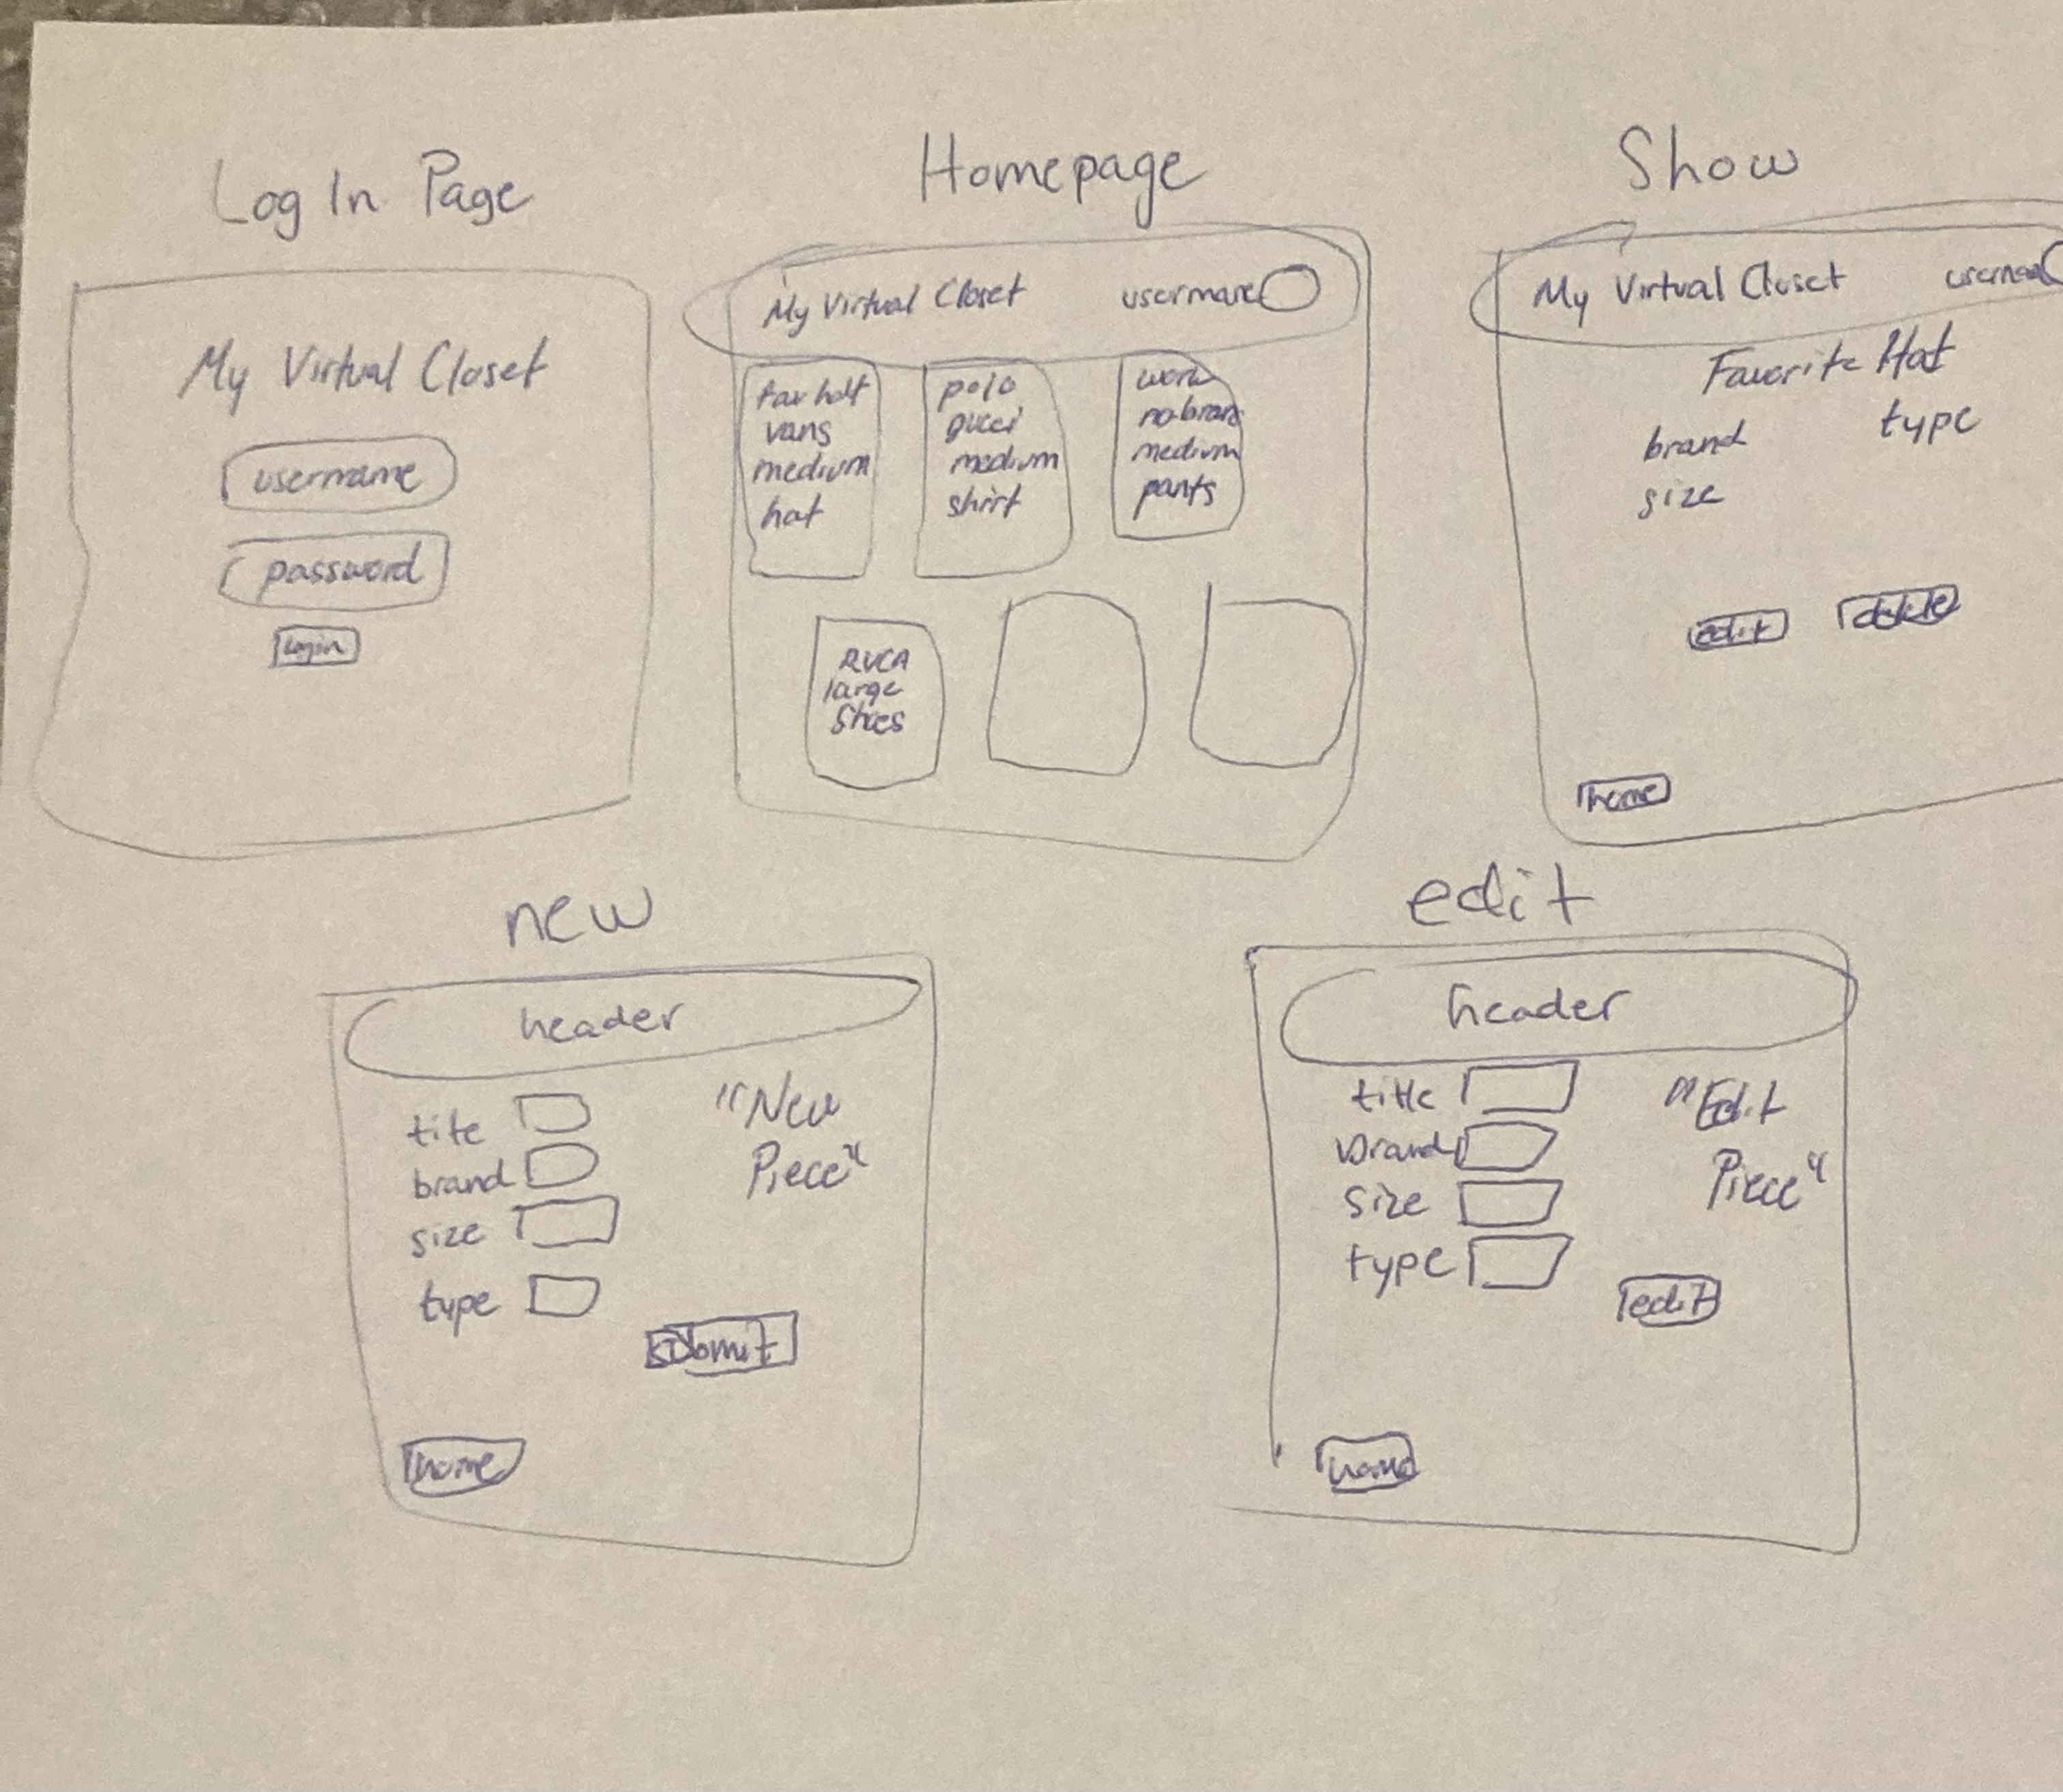 Log In Page
My Virtual Closet
username
password
Login
Homepage
My Virtual Closet username
fav hat
vans
medium
hat
polo
gucci
medium
shirt
work
no brand
medium
pants
RVCA
large
Shoes
Show
My Virtual Closet
Favorite Hat
brand type
size
edit delete
home
new
header
title
brand
size
type
"New
Piece"
submit
home
edit
header
title
brand
size
type
"Edit
Piece"
edit
home